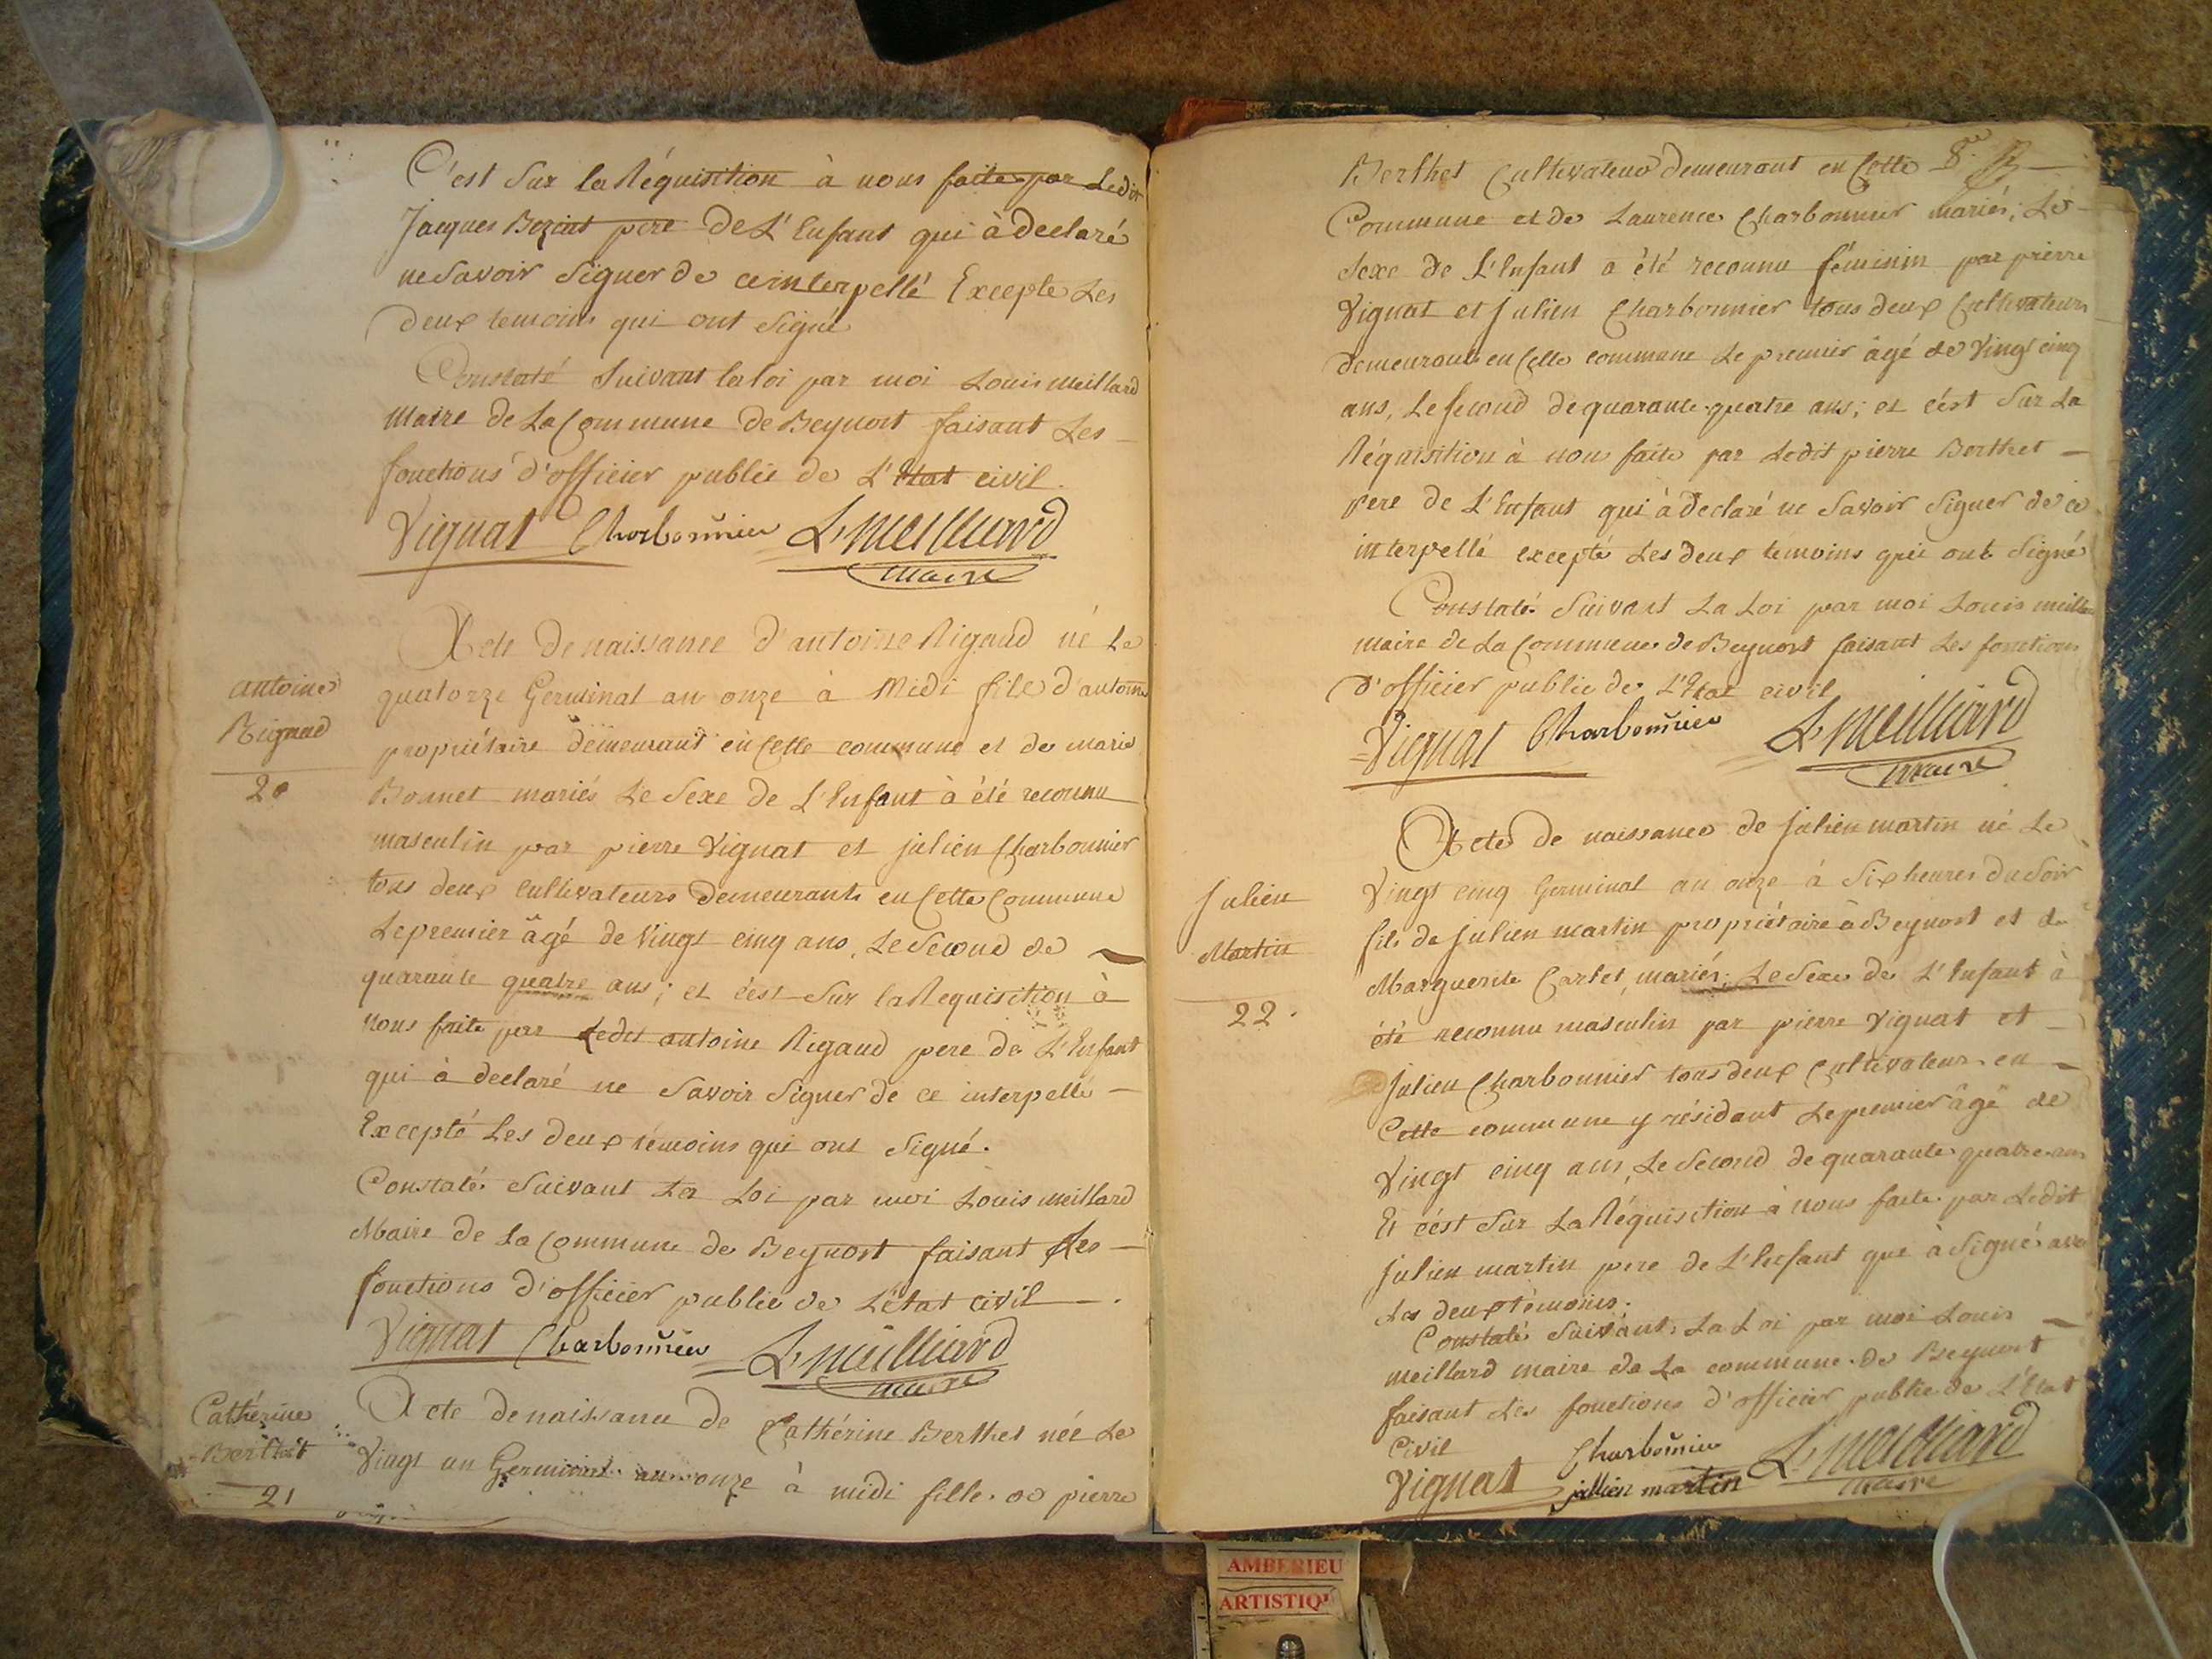 C'est Sur la Réquisition à nous faite par Ledit
Jacques pere de L'Enfant qui à declaré
ne Savoir Signer de ce interpellé Excepte Les
deux temoins qui ont Signé
Constaté Suivant la loi par moi Louis meillard
Maire de La Commune de Beynost faisant Les
fonctions d'officier public de L'Etat civil.
Vignat Charbonnier L. Meilliard
maire
Antoine
Rigaud
20
Acte de naissance d'antoine Rigaud né Le
quatorze Germinal an onze à Midi fils d'antoine
propriétaire demeurant en Cette commune et de marie
Bonnet mariés Le Sexe de L'Enfant à été reconnu
masculin par pierre Vignat et julien Charbonnier
tous deux cultivateurs demeurants en Cette Commune
Le premier âgé de Vingt cinq ans, Le Second de
quarante quatre ans; et c'est Sur la Requisition à
nous faite par Ledit antoine Rigaud pere de L'Enfant
qui à declaré ne Savoir Signer de ce interpellé
Excepté Les deux témoins qui ont Signé.
Constaté Suivant La Loi par moi Louis meillard
Maire de La Commune de Beynost faisant Les
fonctions d'officier public de L'état civil
Vignat Charbonnier L. Meilliard
maire
Cathérine
Berthet
21
Acte de naissance de Cathérine Berthet née Le
Vingt un Germinal an onze à midi fille de pierre
Berthet Cultivateur demeurant en Cette
Commune et de Laurence Charbonnier mariés; Le
Sexe de L'Enfant a été reconnu féminin par pierre
Vignat et Julien Charbonnier tous deux Cultivateurs
demeurants en Cette commune Le premier âgé de Vingt cinq
ans, Le second de quarante quatre ans; et c'est Sur La
Réquisition à nous faite par Ledit pierre Berthet
pere de L'Enfant qui à declaré ne Savoir Signer de ce
interpellé excepté Les deux témoins qui ont Signé
Constaté Suivant La Loi par moi Louis meillard
maire de La Commune de Beynost faisant Les fonctions
d'officier public de L'Etat civil
Vignat Charbonnier L. Meilliard
maire
Julien
Martin
22.
Acte de naissance de Julien martin né Le
Vingt cinq Germinal an onze à Six heures du Soir
fils de Julien martin propriétaire à Beynost et de
Marguerite Carlet, mariés; Le Sexe de L'Enfant à
été reconnu masculin par pierre Vignat et
Julien Charbonnier tous deux Cultivateurs en
Cette commune y résidant Le premier âgé de
Vingt cinq ans, Le Second de quarante quatre ans
Et c'est Sur La Réquisition à nous faite par Ledit
Julien martin pere de L'Enfant que à Signé avec
Les deux témoins;
Constaté Suivant La Loi par moi Louis
meillard maire de La commune de Beynost
faisant Les fonctions d'officier public de L'Etat
Civil
Vignat Charbonnier L. Meilliard
jullien martin maire
AMBERIEU
ARTISTIQU